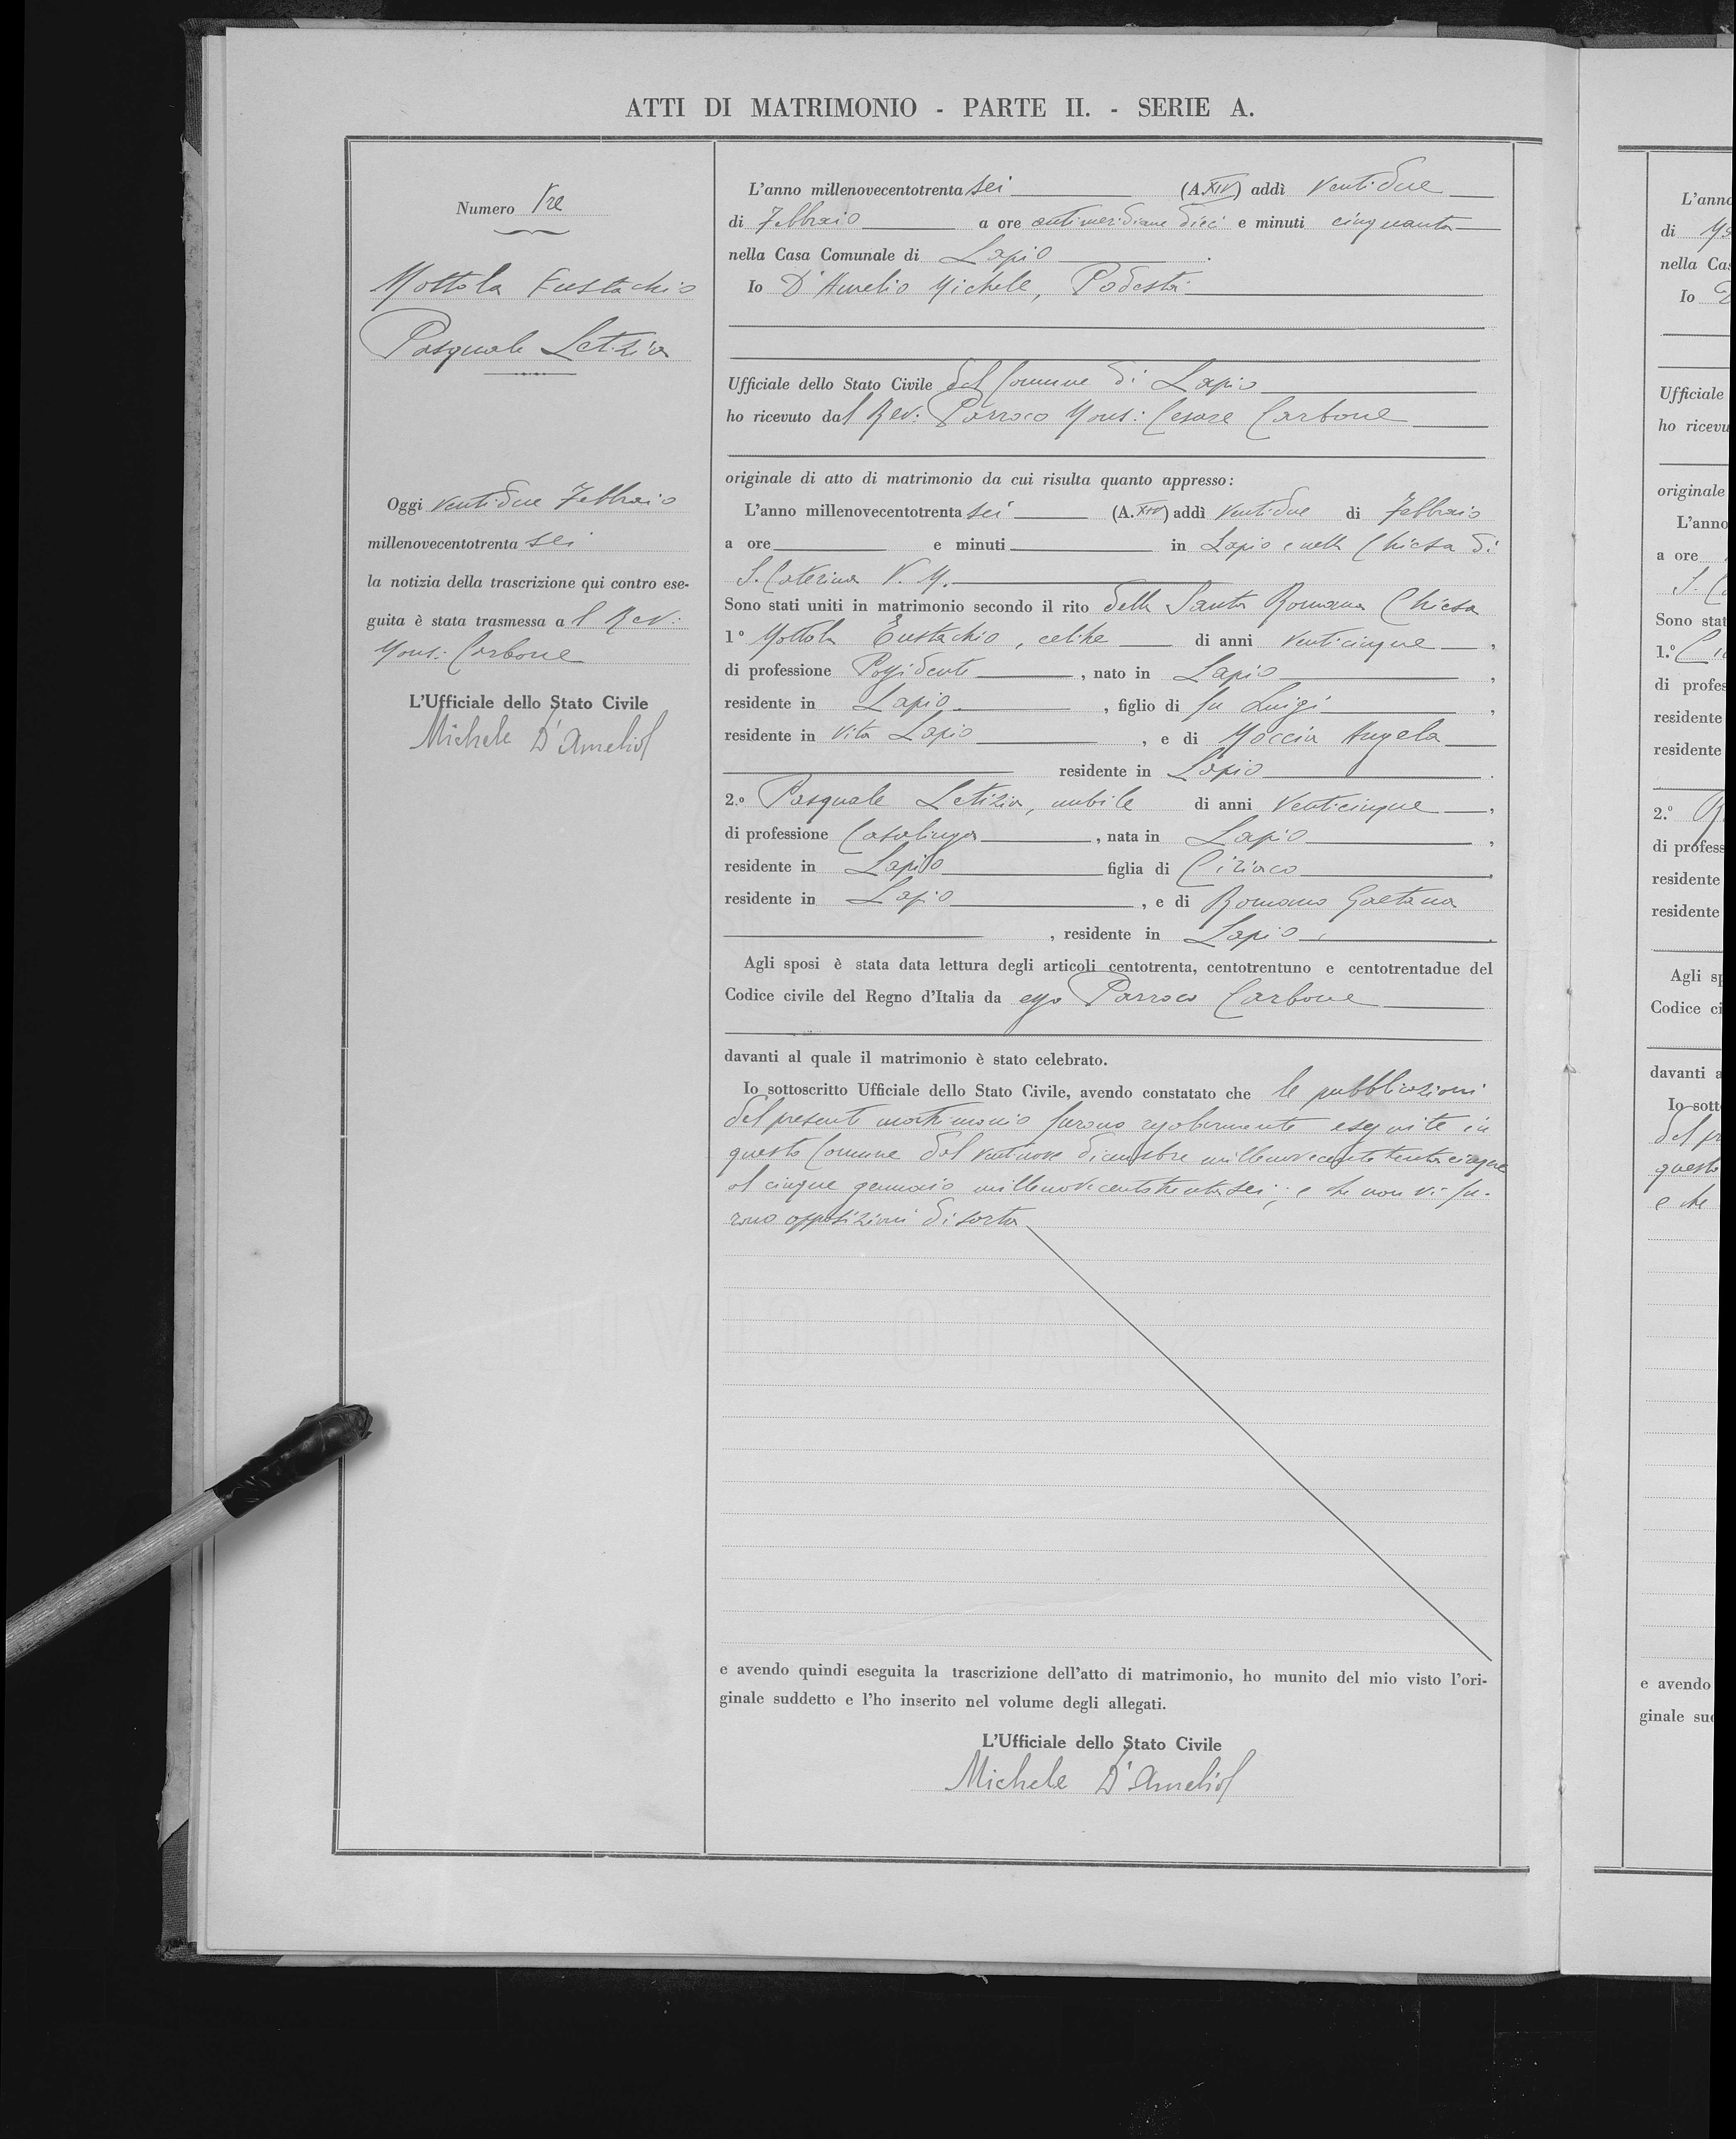 ATTI DI MATRIMONIO - PARTE II. - SERIE A.
Numero Tre
Mottola Eustachio
Pasquale Letizia
Oggi ventidue Febbraio
millenovecentotrenta sei
la notizia della trascrizione qui contro ese-
guita è stata trasmessa al Rev:
Mons: Carbone
L'Ufficiale dello Stato Civile
Michele D'Amelio
L'anno millenovecentotrenta sei (A. XIV) addì ventidue
di Febbraio a ore antimeridiane dieci e minuti cinquanta
nella Casa Comunale di Lapio.
Io D'Amelio Michele, Podestà
Ufficiale dello Stato Civile del Comune di Lapio
ho ricevuto dal Rev: Parroco Mons: Cesare Carbone
originale di atto di matrimonio da cui risulta quanto appresso:
L'anno millenovecentotrenta sei (A. XIV) addì ventidue di Febbraio
a ore e minuti in Lapio e nella Chiesa di
S. Caterina V. M.
Sono stati uniti in matrimonio secondo il rito della Santa Romana Chiesa
1° Mottola Eustachio, celibe di anni venticinque,
di professione Possidente, nato in Lapio,
residente in Lapio, figlio di fu Luigi,
residente in vita Lapio, e di Moccia Angela
residente in Lapio.
2.° Pasquale Letizia, nubile di anni venticinque,
di professione Casalinga, nata in Lapio,
residente in Lapio figlia di Ciriaco,
residente in Lapio, e di Romano Gaetana
, residente in Lapio.
Agli sposi è stata data lettura degli articoli centotrenta, centotrentuno e centotrentadue del
Codice civile del Regno d'Italia da esso Parroco Carbone
davanti al quale il matrimonio è stato celebrato.
Io sottoscritto Ufficiale dello Stato Civile, avendo constatato che le pubblicazioni
del presente matrimonio furono regolarmente eseguite in
questo Comune dal ventinove dicembre millenovecentotrentacinque
al cinque gennaio millenovecentotrentasei; e che non vi fu-
rono opposizioni di sorta
e avendo quindi eseguita la trascrizione dell'atto di matrimonio, ho munito del mio visto l'ori-
ginale suddetto e l'ho inserito nel volume degli allegati.
L'Ufficiale dello Stato Civile
Michele D'Amelio
L'anno
di
nella Cas
Io
Ufficiale
ho ricevu
originale
L'anno
a ore
Sono stat
1.°
di profes
residente
residente
2.°
di profess
residente
residente
Agli sp
Codice ci
davanti a
Io sott
del pr
questo
e che
e avendo
ginale sud